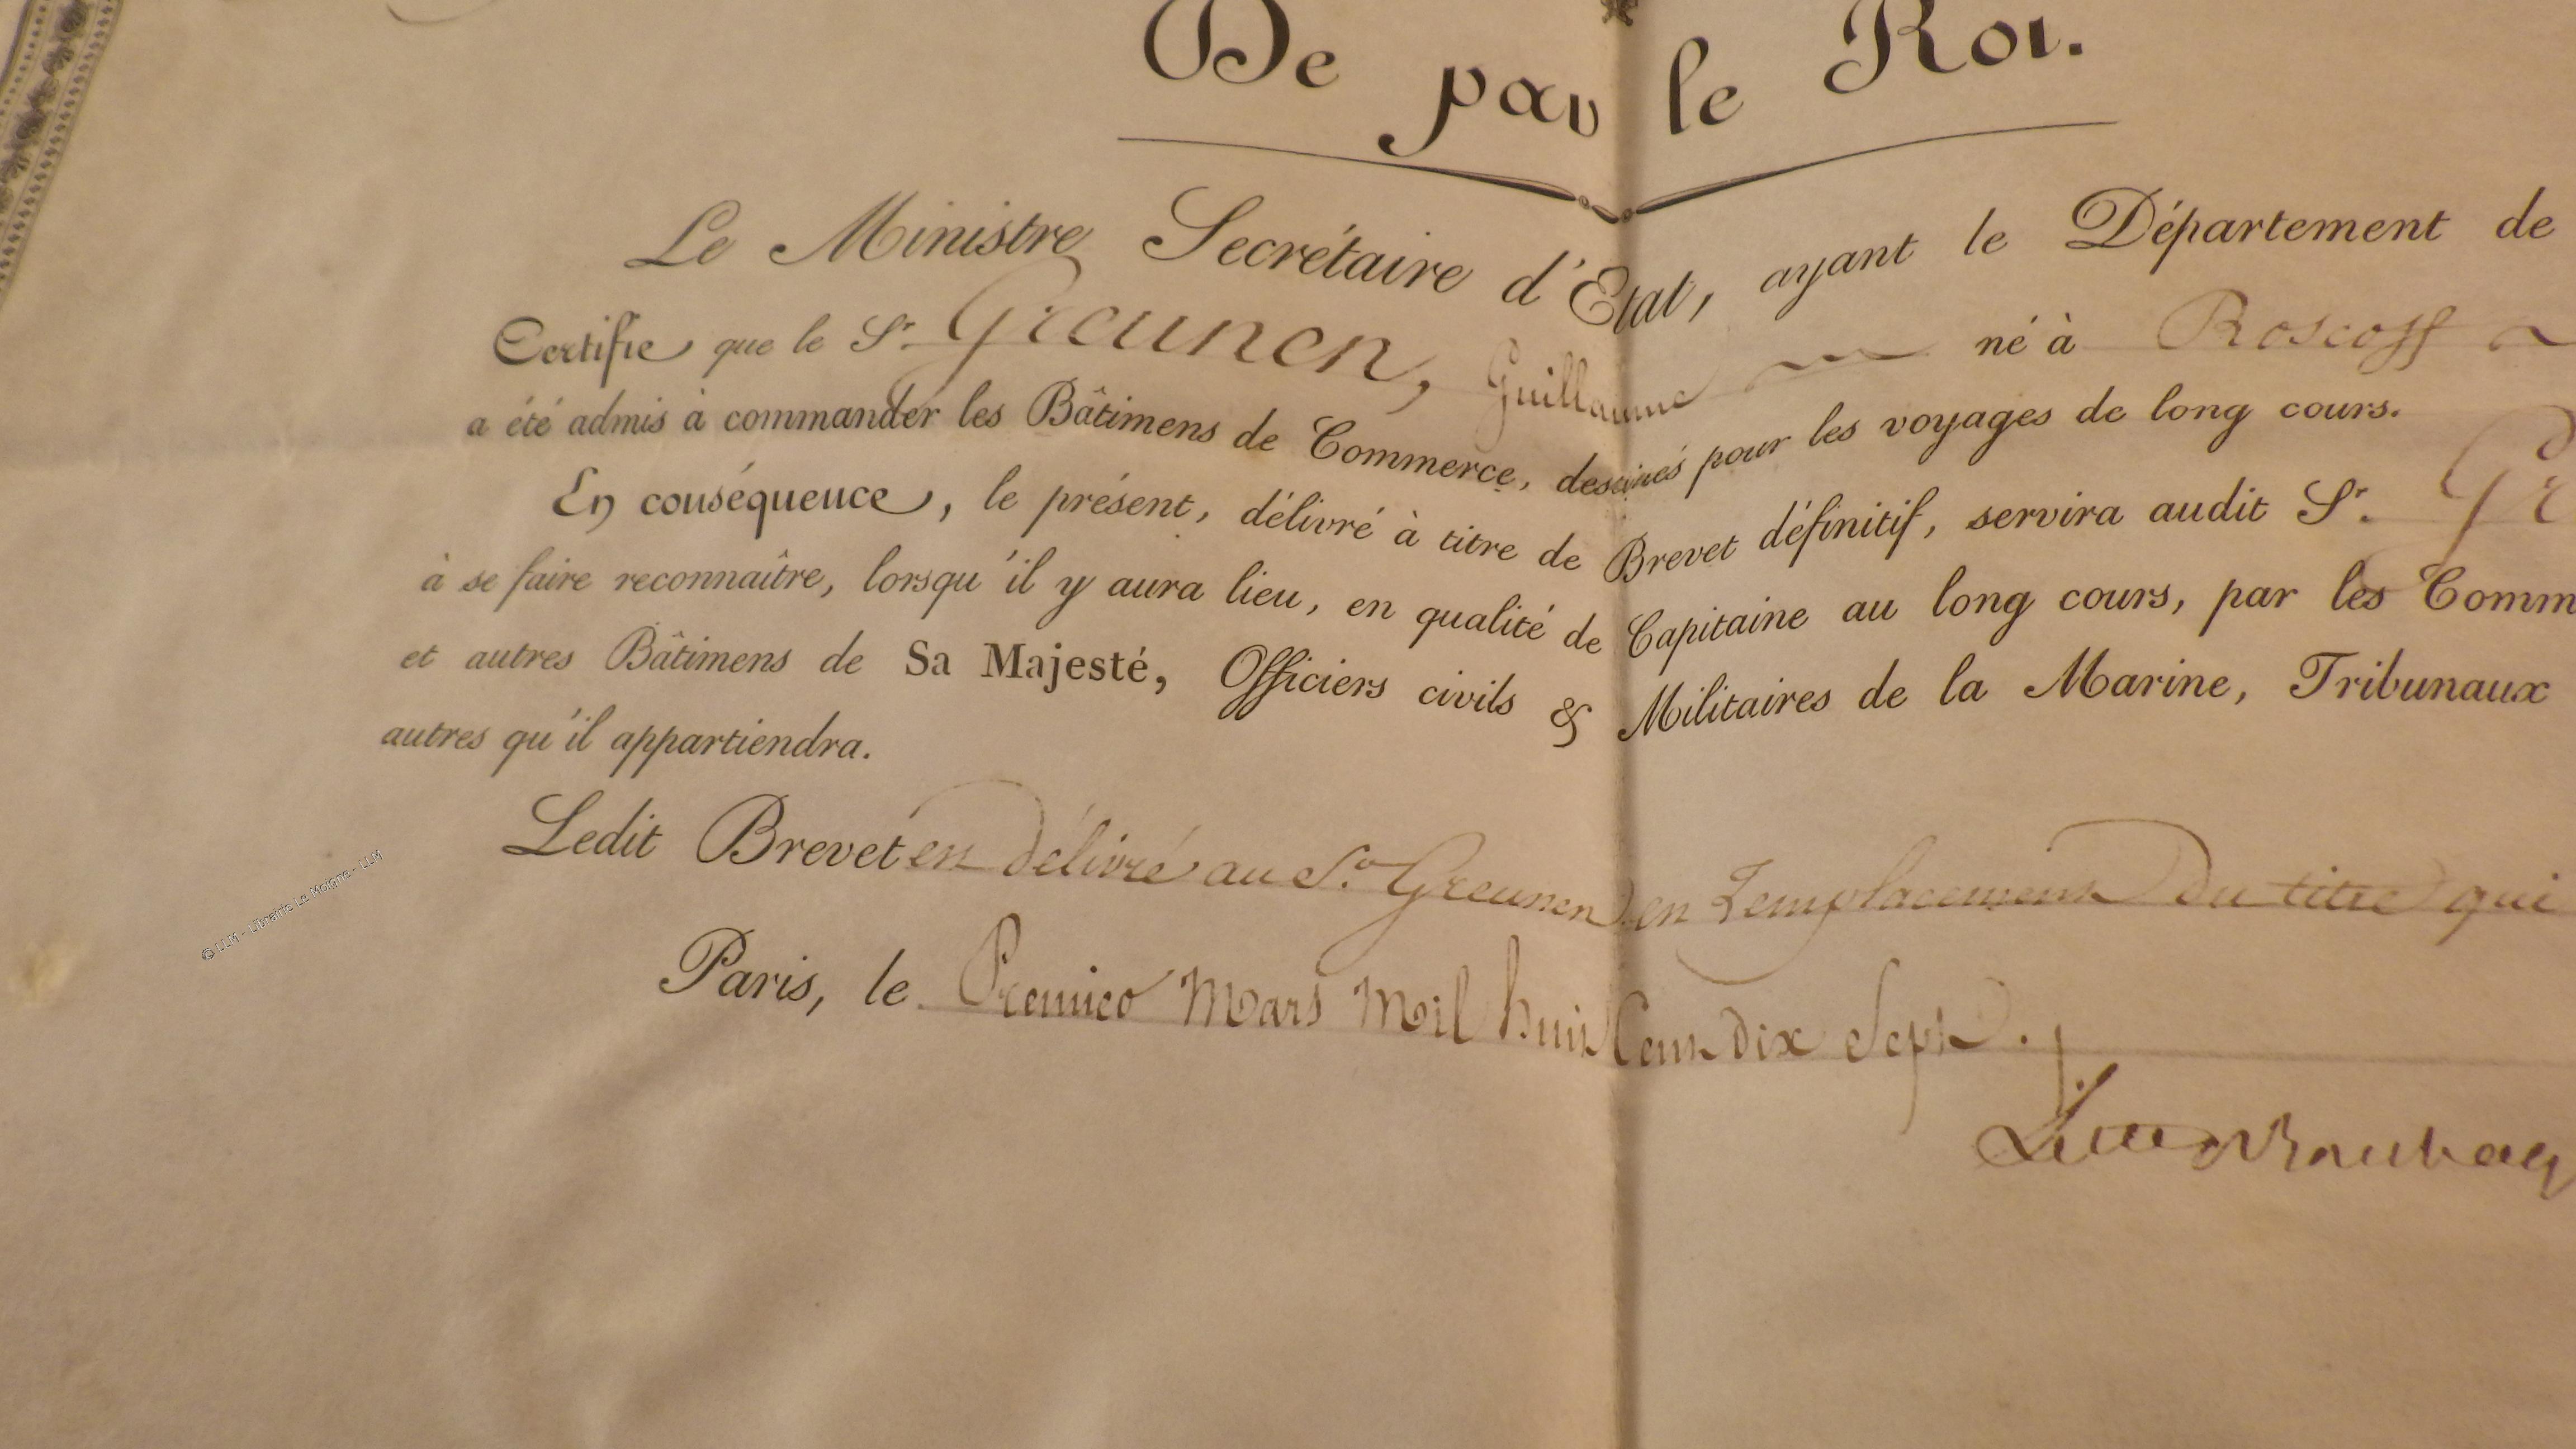 De par le Roi.
Le Ministre Secrétaire d'Etat, ayant le Département de
Certifie que le Sr. Greunen, Guillaume né à Roscoff
a été admis à commander les Bâtimens de Commerce, destinés pour les voyages de long cours.
En conséquence, le présent, délivré à titre de Brevet définitif, servira audit Sr. Gr
à se faire reconnaître, lorsqu'il y aura lieu, en qualité de Capitaine au long cours, par les Comm
et autres Bâtimens de Sa Majesté, Officiers civils & Militaires de la Marine, Tribunaux
autres qu'il appartiendra.
Ledit Brevet est délivré au Sr. Greunen en remplacement du titre qui
Paris, le Premier Mars Mil huit Cent dix Sept.
© LLM - Librairie Le Moigne - LLM